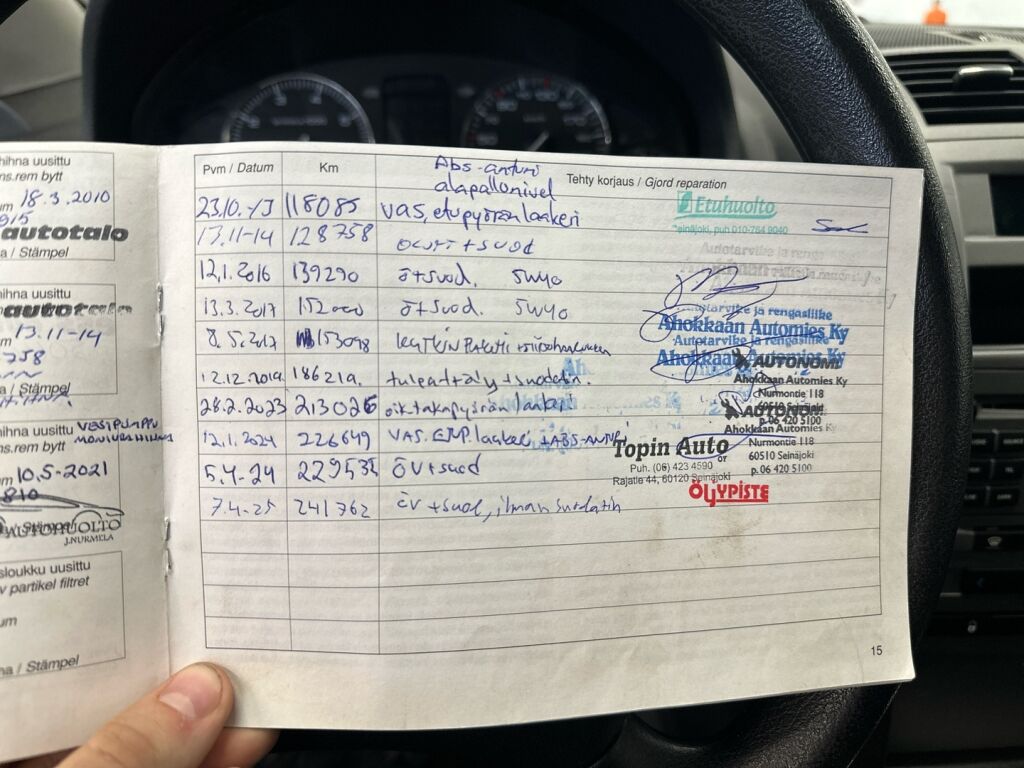 hihna uusittu
ns.rem bytt
um 18.3.2010
915
autotalo
a / Stämpel
hihna uusittu
ns.rem bytt
autotalo
um 13.11-14
758
a / Stämpel
hihna uusittu VESIPUMPPU
ns.rem bytt
10.5-2021
810
AUTOHUOLTO
J.NURMELA
sloukku uusittu
v partikel filtret
um
na / Stämpel
Pvm / Datum Km Tehty korjaus / Gjord reparation
Abs-anturi
alapallonivel
23.10.-13 118085 vas, etupyörän laakeri
Etuhuolto
Seinäjoki, puh 010-764 9040
13.11-14 128758 + suod
12.1.2016 139290 ö+suod. 5W40
13.3.2017 152000 ö+suod. 5W40
Autotarvike ja rengasliike
Ahokkaan Automies Ky
8.5.2017 153098
Autotarvike ja rengasliike
Ahokkaan Automies Ky
12.12.2019 186219. + suodatin.
AUTONOMI
Ahokkaan Automies Ky
Nurmontie 118
60510 Seinäjoki
p. 06 420 5100
28.2.2023 213026 oik takapyörän laakeri
AUTONOMI
Ahokkaan Automies Ky
Nurmontie 118
60510 Seinäjoki
p. 06 420 5100
12.1.2024 226649 VAS. laakeri + ABS-anturi
Topin Auto
Puh. (06) 423 4590
Rajatie 44, 60120 Seinäjoki
5.4-24 229535 ÖV+suod
ÖLJYPISTE
7.4-25 241762 öv +suod, ilmansuodatin
15